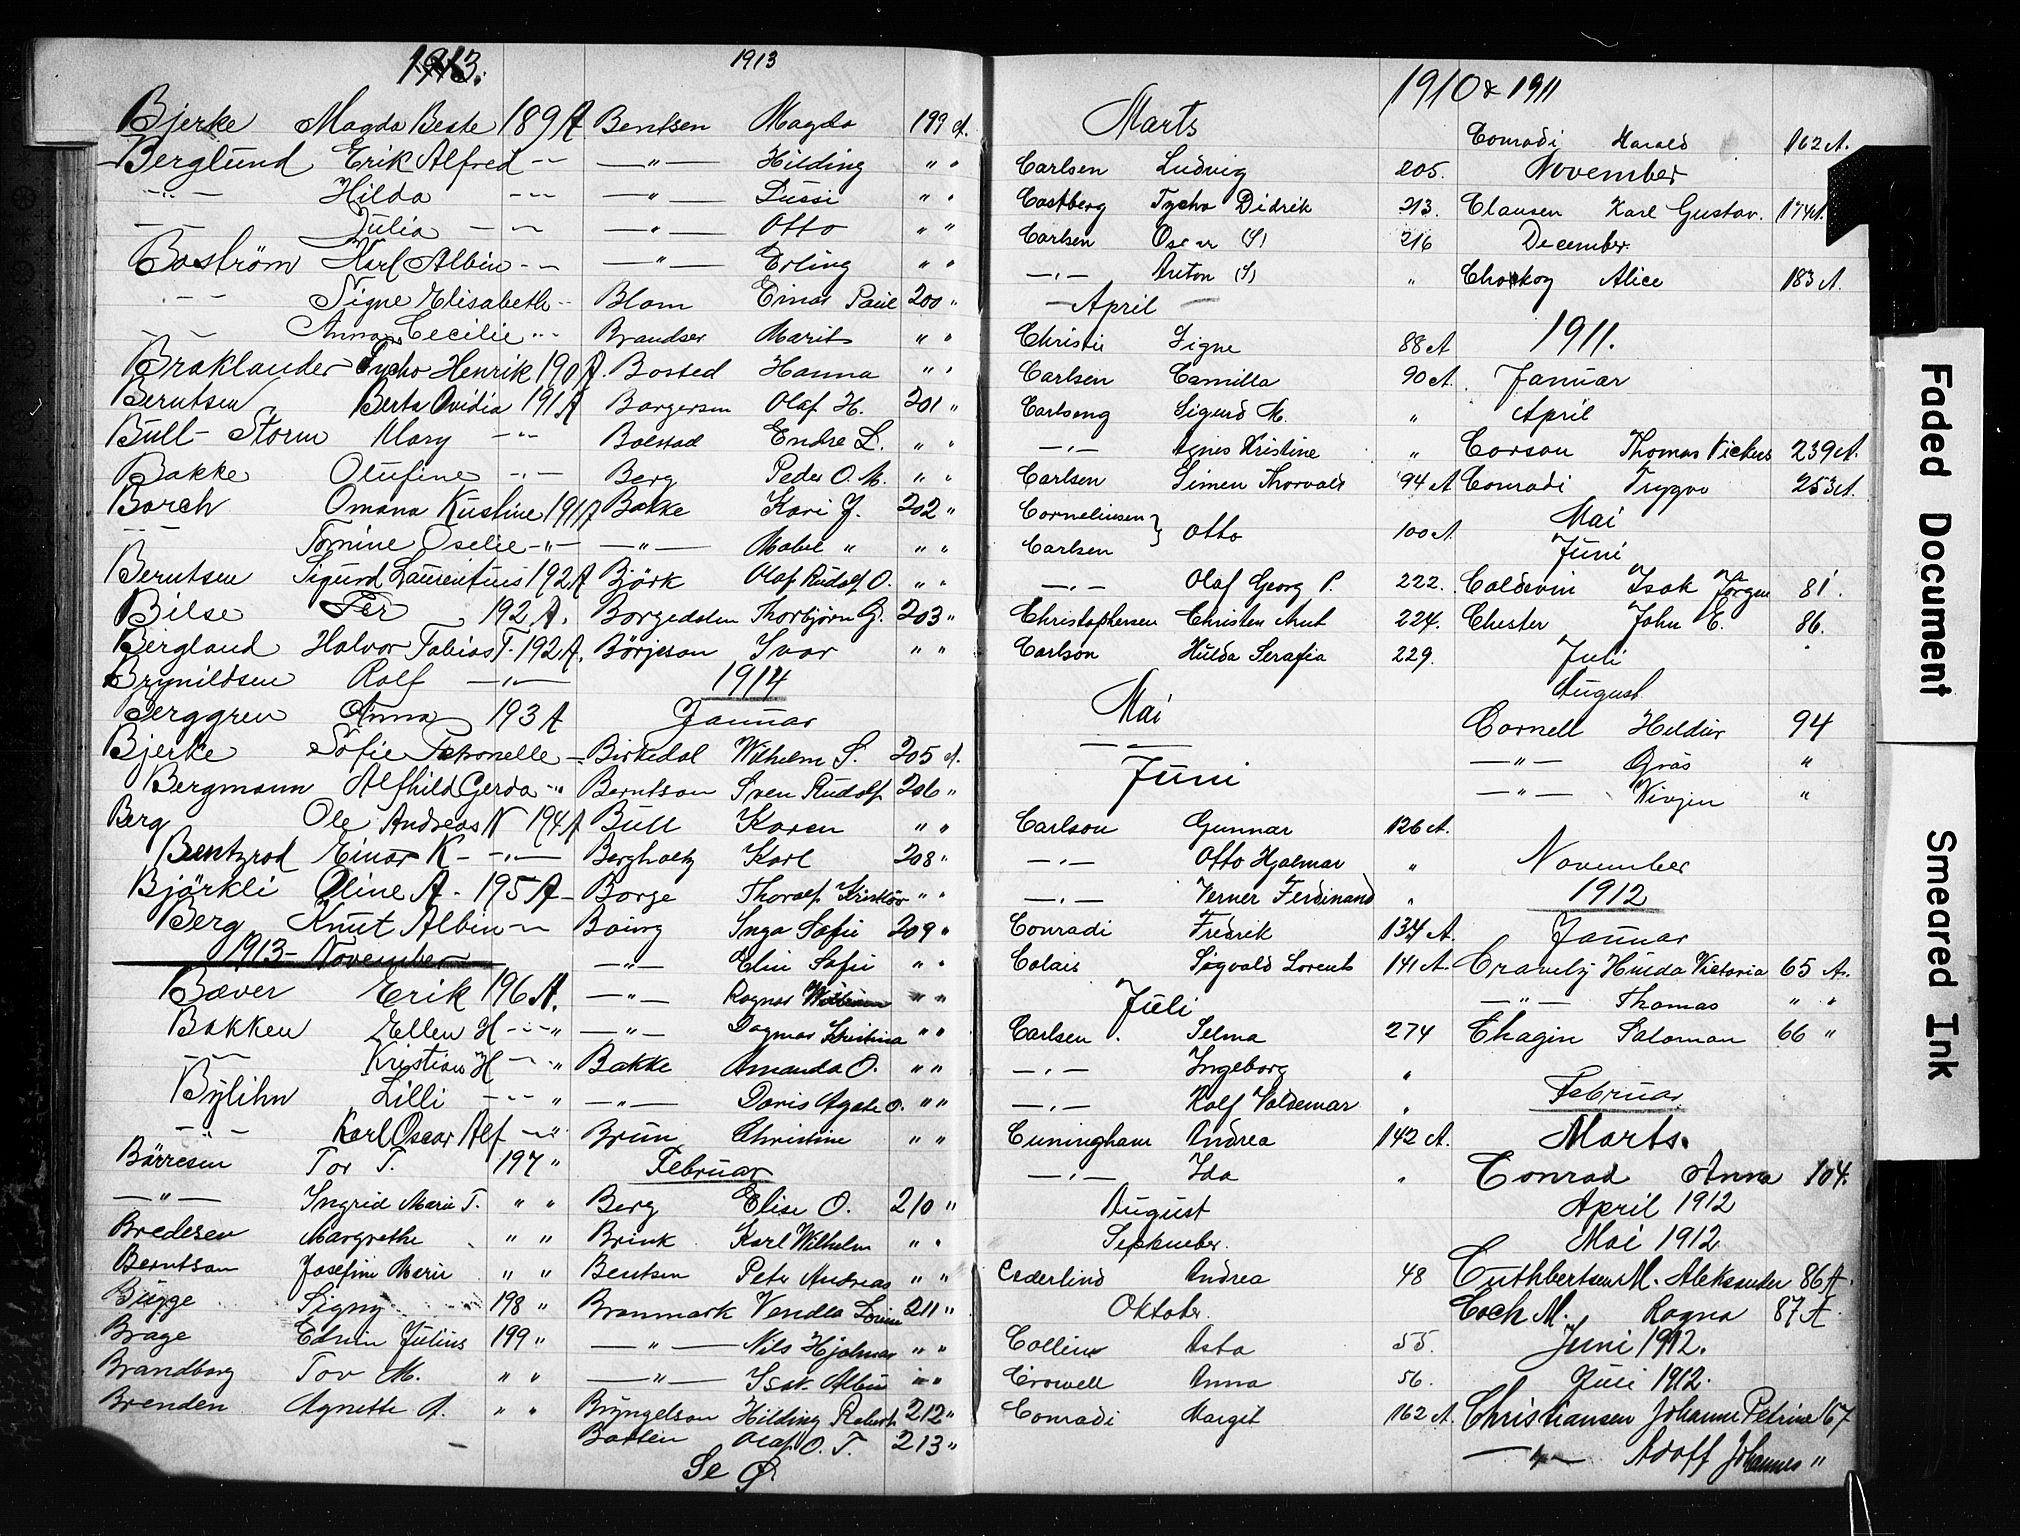 1913.
Bjerke Magda Beate 189 A
Berglund Erik Alfred - -
- " - Hilda - -
- - Julia - -
Boström Karl Albin - -
- - Signe Elisabeth - -
- - Anna Cecilie - -
Braklander Tycho Henrik 190 A.
Berntsen Berta Ovidia 191 A
Bull-Storm Mary - " -
Bakke Olufine - " -
Borch Omana Kristine 191 A
- - Tomine Oselie - " -
Berntsen Sigurd Laurentius 192 A
Bilse Per 192 A.
Bergland Halvor Tobias T. 192 A.
Brynildsen Rolf - " -
Berggren Anna 193 A
Bjerke Sofie Petronelle -
Bergmann Alfhild Gerda - "
Berg Ole Andreas N 194 A
Bentzrod Einar K - - " -
Björkli Oline A - 195 A -
Berg Knut Albin - -
1913 - November
Bæver Erik 196 A.
Bakken Ellen H - - "
- - Kristian H - - "
Bylihn Lilli - - "
- " - Karl Oscar Alf - "
Börresen Tor T. 197 "
- " - Ingrid Marie T. " "
Bredesen Margrethe " "
Berntsen Josefine Marie " "
Bugge Signy 198 "
Brage Edvin Julius 199 "
Brandborg Tov M. " "
Brenden Agnette A. " "
1913
Bentsen Magda 199 A.
- " - Hilding " "
- " - Sussi " "
- " - Otto " "
- " - Erling " "
Blom Einar Paul 200 "
Brandser Marit " "
Bosted Hanna " "
Borgersen Olaf H. 201 "
Bolstad Endre L. " "
Berg Peder O. M. " "
Bakke Kari J. 202 "
- " - Mabel " " "
Björk Olaf Rudolf O. " "
Borgedalen Thorbjörn G. 203 "
Börjeson Ivar " "
1914
Januar
Birkedal Wilhelm S. 205 A.
Berntson Sven Rudolf 206 "
Bull Karen " "
Bergholtz Karl 208 "
Borge Thoralf Kristian " "
Boing Inga Sofie 209 "
- " - Elin Sofie " "
- " - Ragnar " "
- " - Dagmar Kristina " "
Bakke Amanda O. " "
- " - Doris Agate O. " "
Brun Christine " "
Februar
Berg Elise O. 210 "
Brink Karl Wilhelm " "
Bentsen Peter Andreas " "
Branmark Vendla 211 "
- " - Nils Hjalmar " "
- " - Isak Albin " "
Bryngelson Hilding Robert 212 "
Batten Olaf O. T. 213 "
Se Ø.
1910 & 1911
Marts
Carlsen Ludvig 205.
Castberg Tycho Didrik 213.
Carlsen Oscar (S) 216
- " - Anton (S) "
- April -
Christie Signe 88 A
Carlsen Camilla 90 A.
Carlseng Sigurd M. "
- " - Agnes Kristine "
Carlsen Simen Thorvald 94 A
Corneliusen } Otto 100 A.
Carlsen
- " - Olaf Georg P. 222.
Christophersen Christen Arnt 224.
Carlson Hulda Serafia 229.
Mai
- -
Juni
Carlson Gunnar 126 A.
- " - Otto Hjalmar "
- " - Verner Ferdinand "
Conradi Fredrik 137 A.
Colais Sigvald Lorents 141 A.
Juli
Carlsen Selma 274
- " - Ingeborg "
- " - Rolf Valdemar "
Cuningham Andrea 142 A.
- " - Ida "
August
September
Cederlind Andrea 48
Oktober
Collins Asta 55.
Crowell Anna 56.
Conradi Margit 162 A.
Conradi Harald 162 A.
November
Clausen Karl Gustav. 174 A.
December.
Choikog Alice 183 A.
1911.
Januar
April
Corson Thomas Vickers 239 A.
Conradi Trygve 253 A.
Mai
Juni
Coldevin Isak Jørgen 81.
Chester John E. 86.
Juli
August
Cornell Heldur 94
- " - Gräs "
- " - Vivjen "
November
1912
Januar
Cravely Hulda Victoria 65 A.
- " - Thomas " "
Chagin Salomon 66 "
Februar
Marts.
Conrad Anna 104.
April 1912
Mai 1912
Cuthbertsen M. Aleksander 86 A.
Coch M. Ragna 87 A.
Juni 1912.
Juli 1912.
Christiansen Johanne Petrine 167
- " - Adolf Johannes "
Faded Document
Smeared Ink